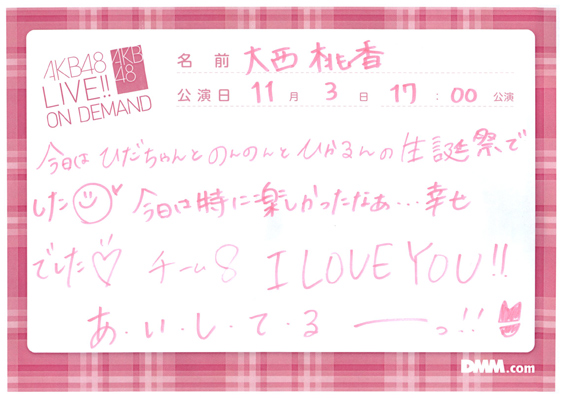 AKB48
LIVE!!
ON DEMAND
AKB
48
名前 大西桃香
公演日 11月3日 17:00 公演
今日はひだちゃんとのんのんとひかるんの生誕祭で
した 今日は特に楽しかったなぁ…幸せ
でした♡ チーム8 I LOVE YOU!!
あ・い・し・て・る ――っ!!
DMM.com